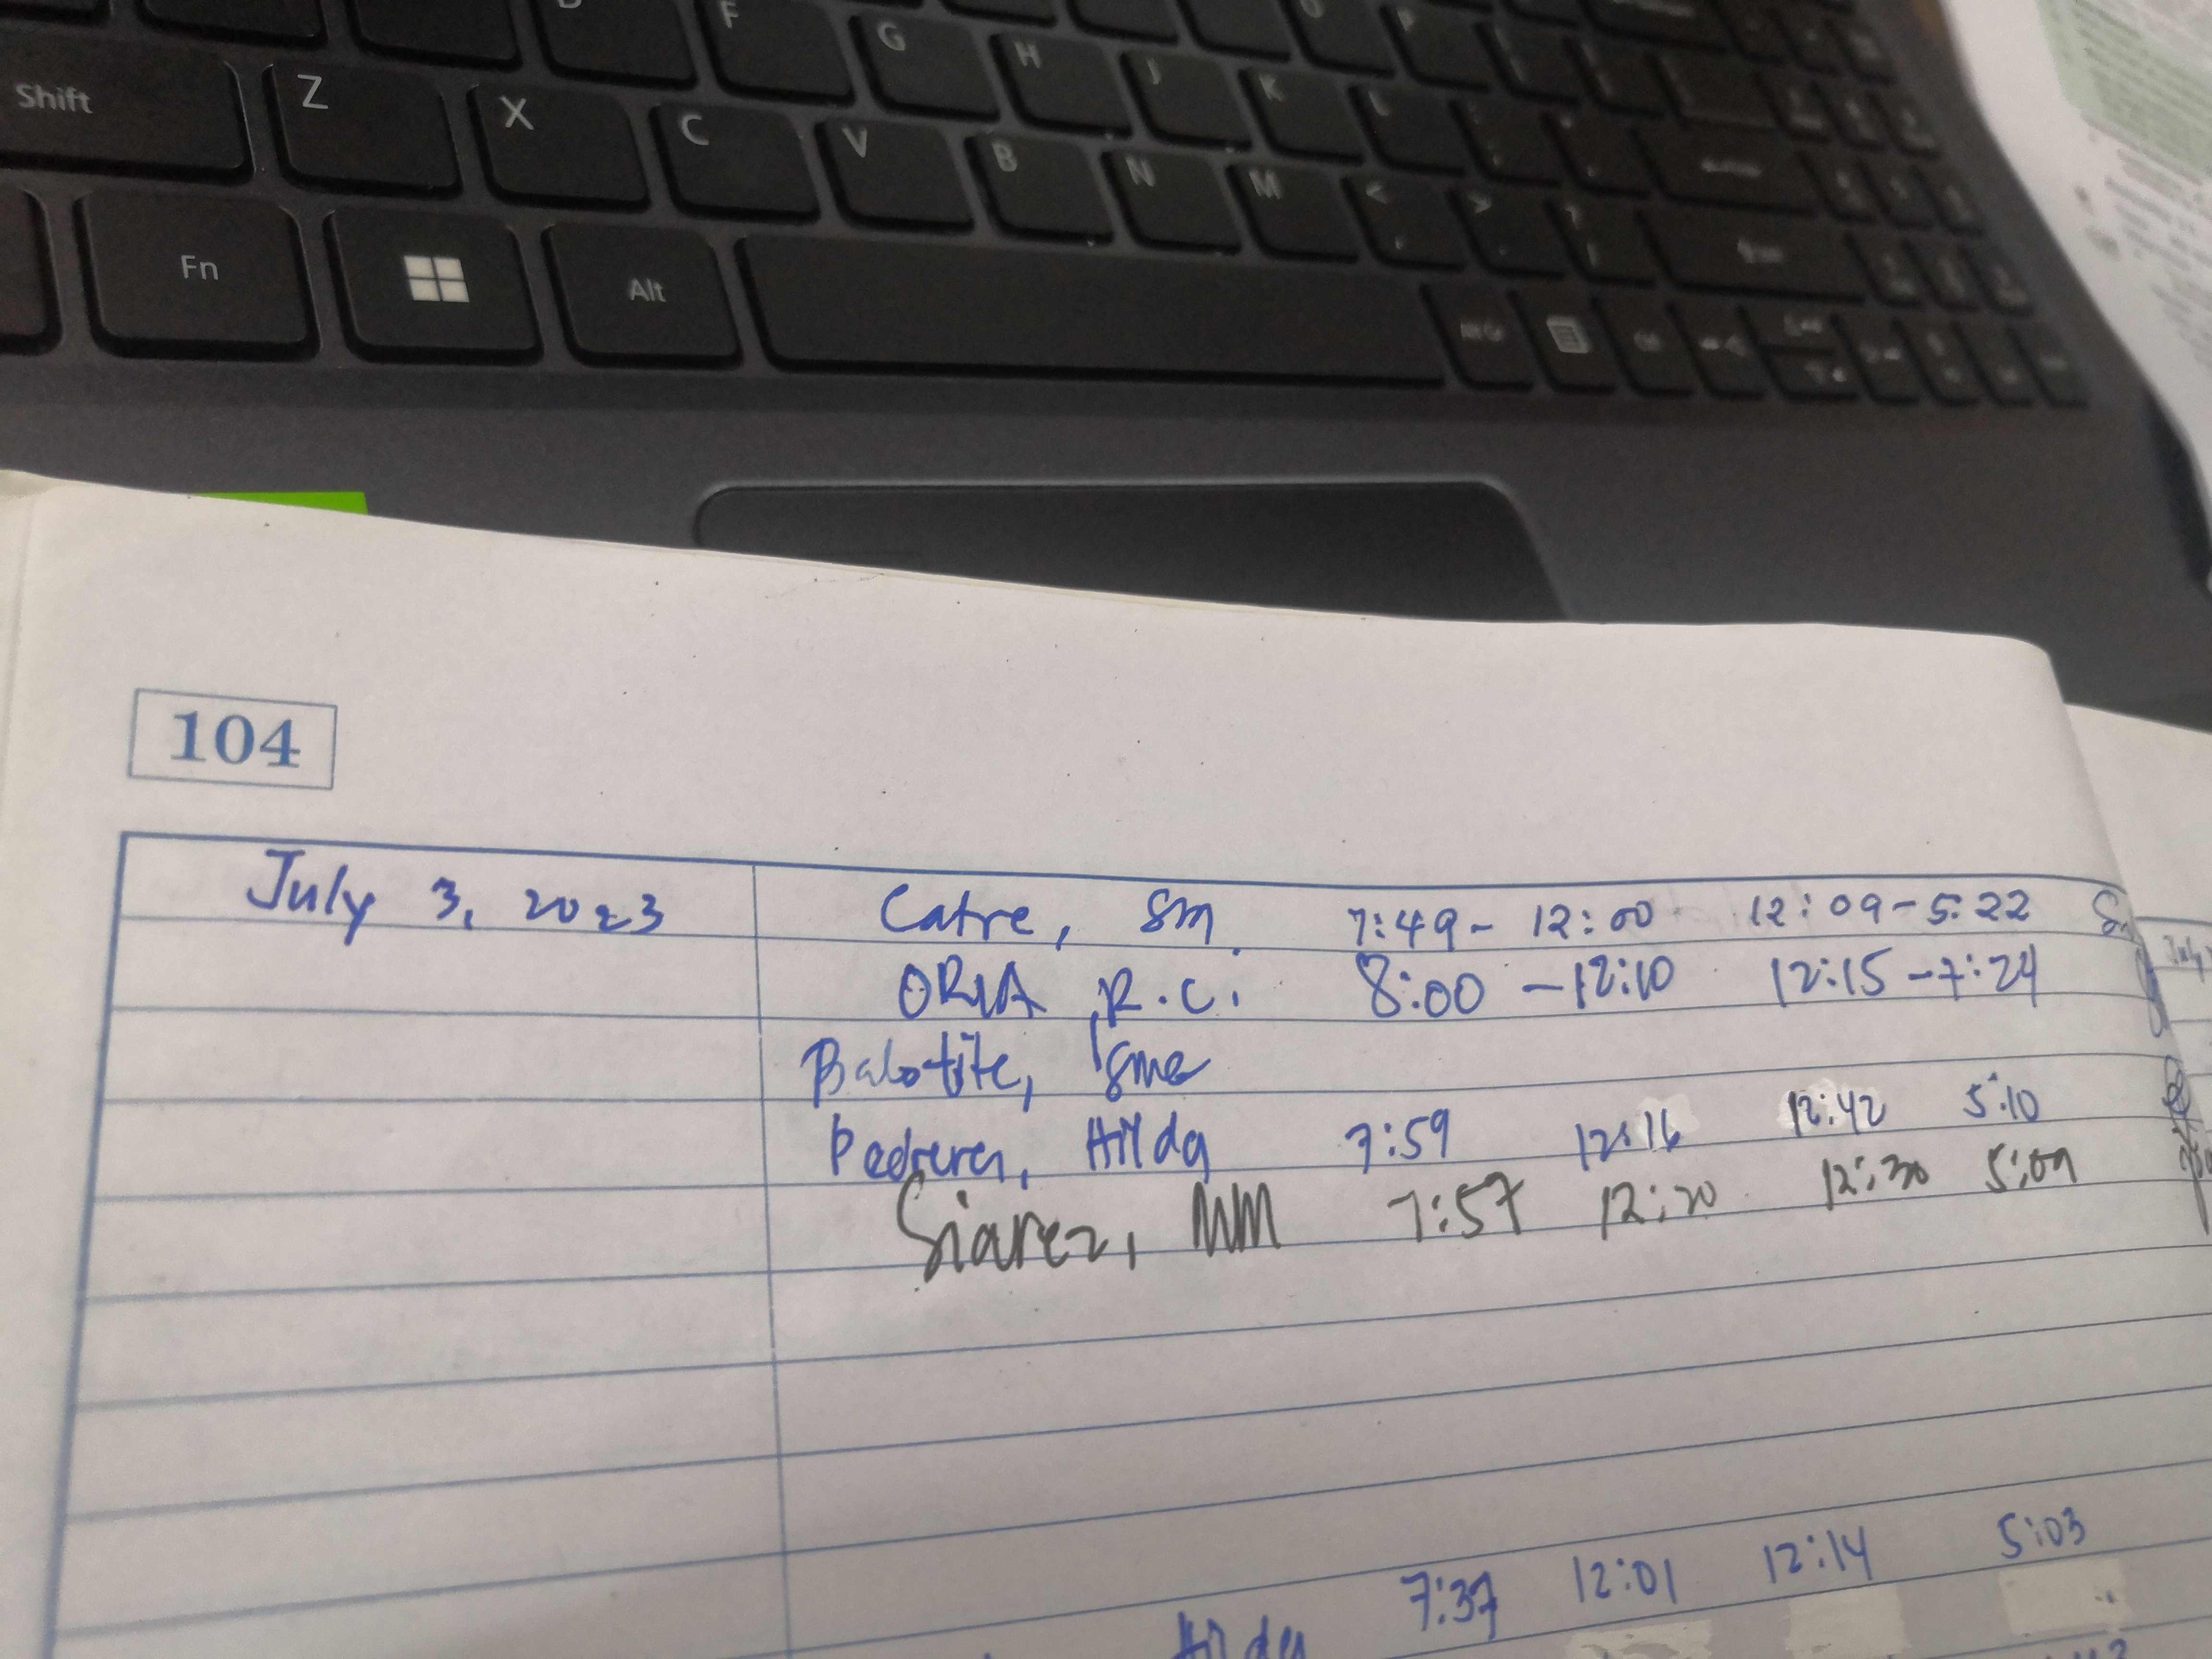 F G H J K L
Shift Z X C V B N M < >
Fn Alt
104
July 3, 2023 Catre, SM 7:49 - 12:00 12:09 - 5:22
ORIA, R.C. 8:00 - 12:10 12:15 - 7:24
Babotite,
Pedrera, Hilda 7:59 12:16 12:42 5:10
Siarez, MM 7:57 12:20 12:30 5:09
7:37 12:01 12:14 5:03
Hilda